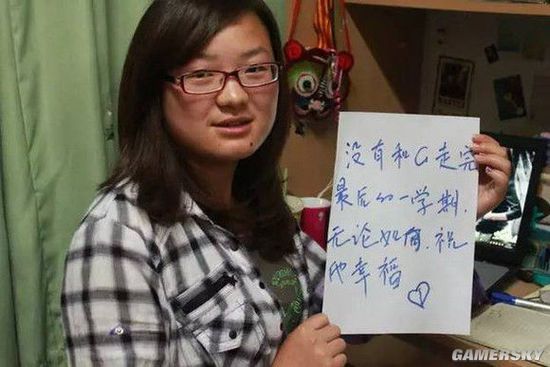 没有和G走完
最后的一学期.
无论如何.祝
他幸福♡
GAMERSKY